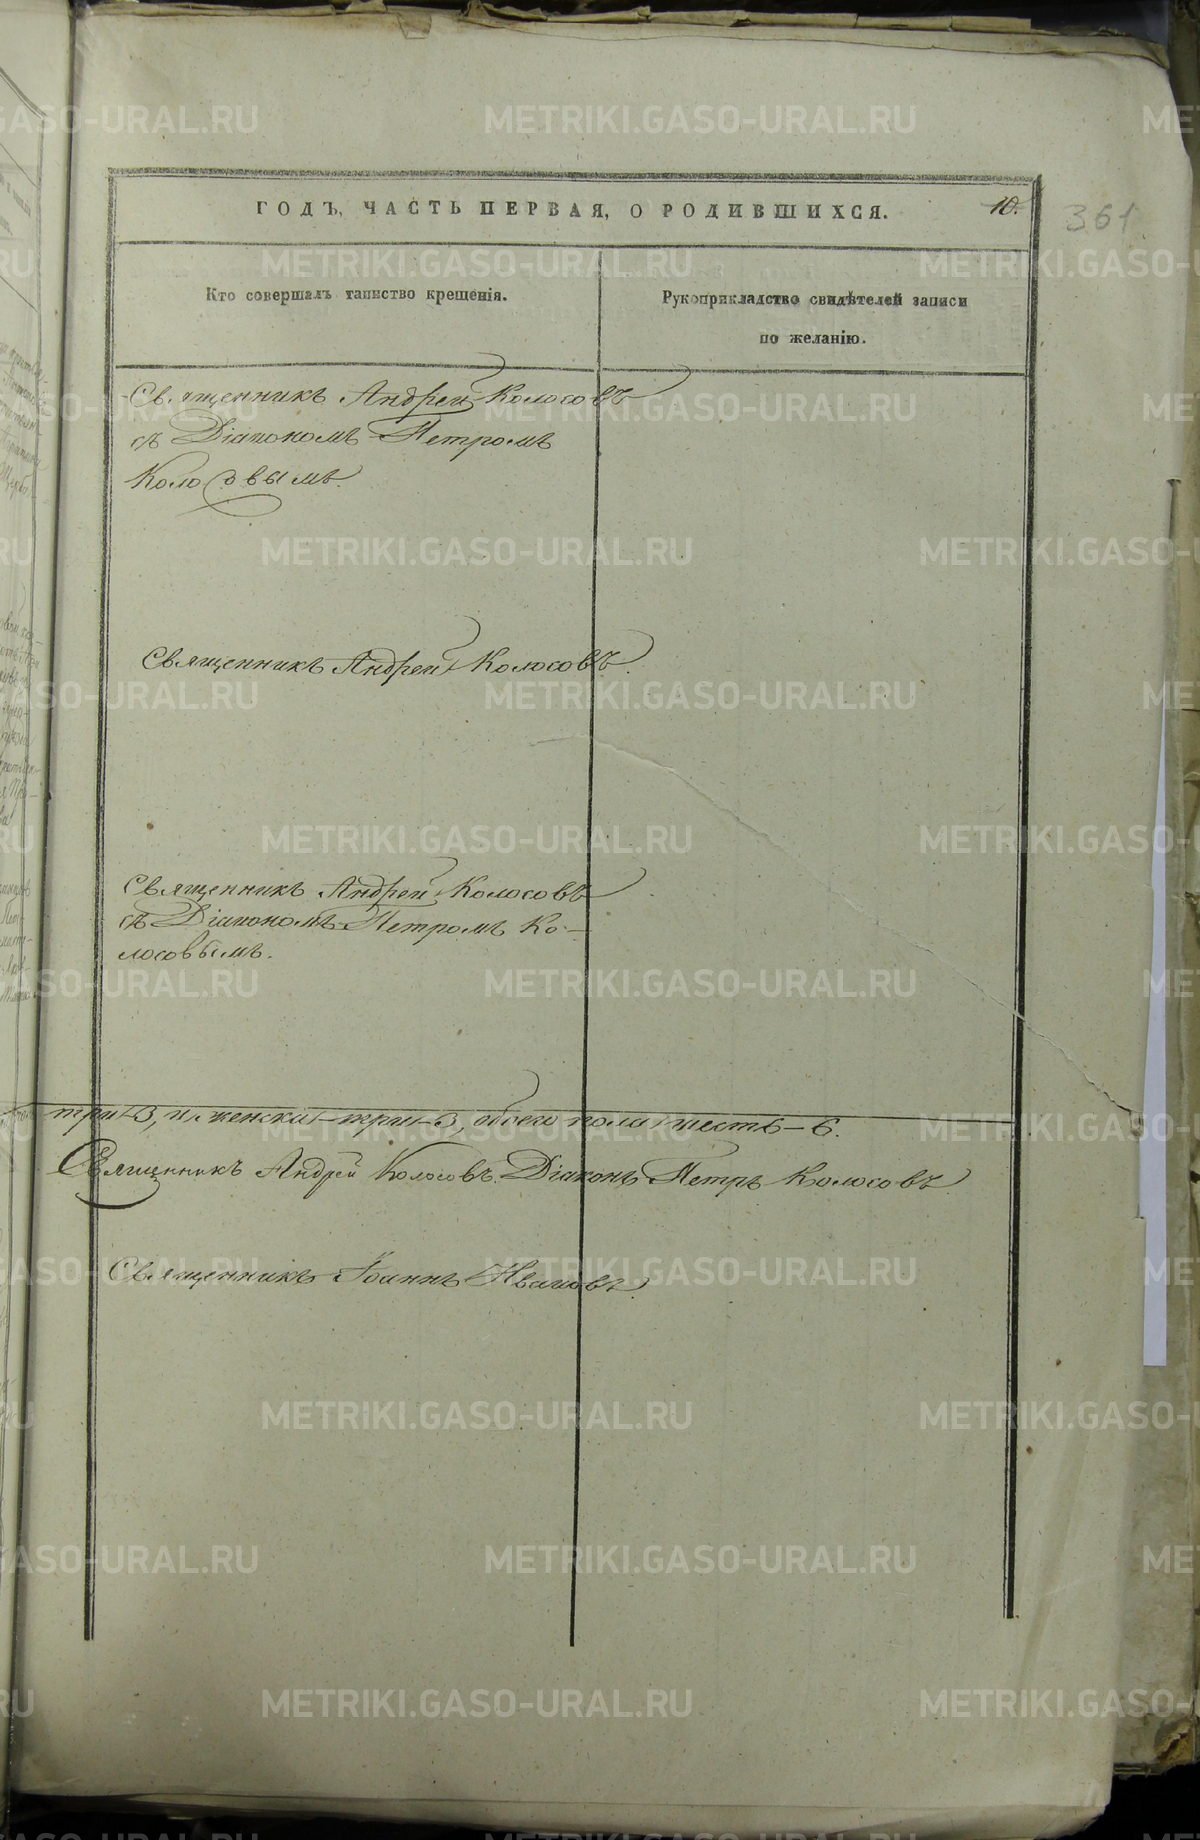 ГОДЪ, ЧАСТЬ ПЕРВАЯ, О РОДИВШИХСЯ.
10.
361
Кто совершалъ таинство крещенія.
Рукоприкладство свидѣтелей записи
по желанію.
Священникъ Андрей Колосовъ
съ Діакономъ Петромъ
Колосовымъ.
Священникъ Андрей Колосовъ.
Священникъ Андрей Колосовъ
съ Діакономъ Петромъ Ко-
лосовымъ.
три-3, и женска-три-3, обоего пола шесть-6.
Священникъ Андрей Колосовъ. Діаконъ Петръ Колосовъ
Священникъ Іоаннъ Ивановъ.
METRIKI.GASO-URAL.RU